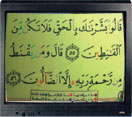 قَالُوا۟ بَشَّرْنَٰكَ بِٱلْحَقِّ فَلَا تَكُن مِّنَ
ٱلْقَٰنِطِينَ ٥٥ قَالَ وَمَن يَقْنَطُ
مِن رَّحْمَةِ رَبِّهِۦٓ إِلَّا ٱلضَّآلُّونَ ٥٦